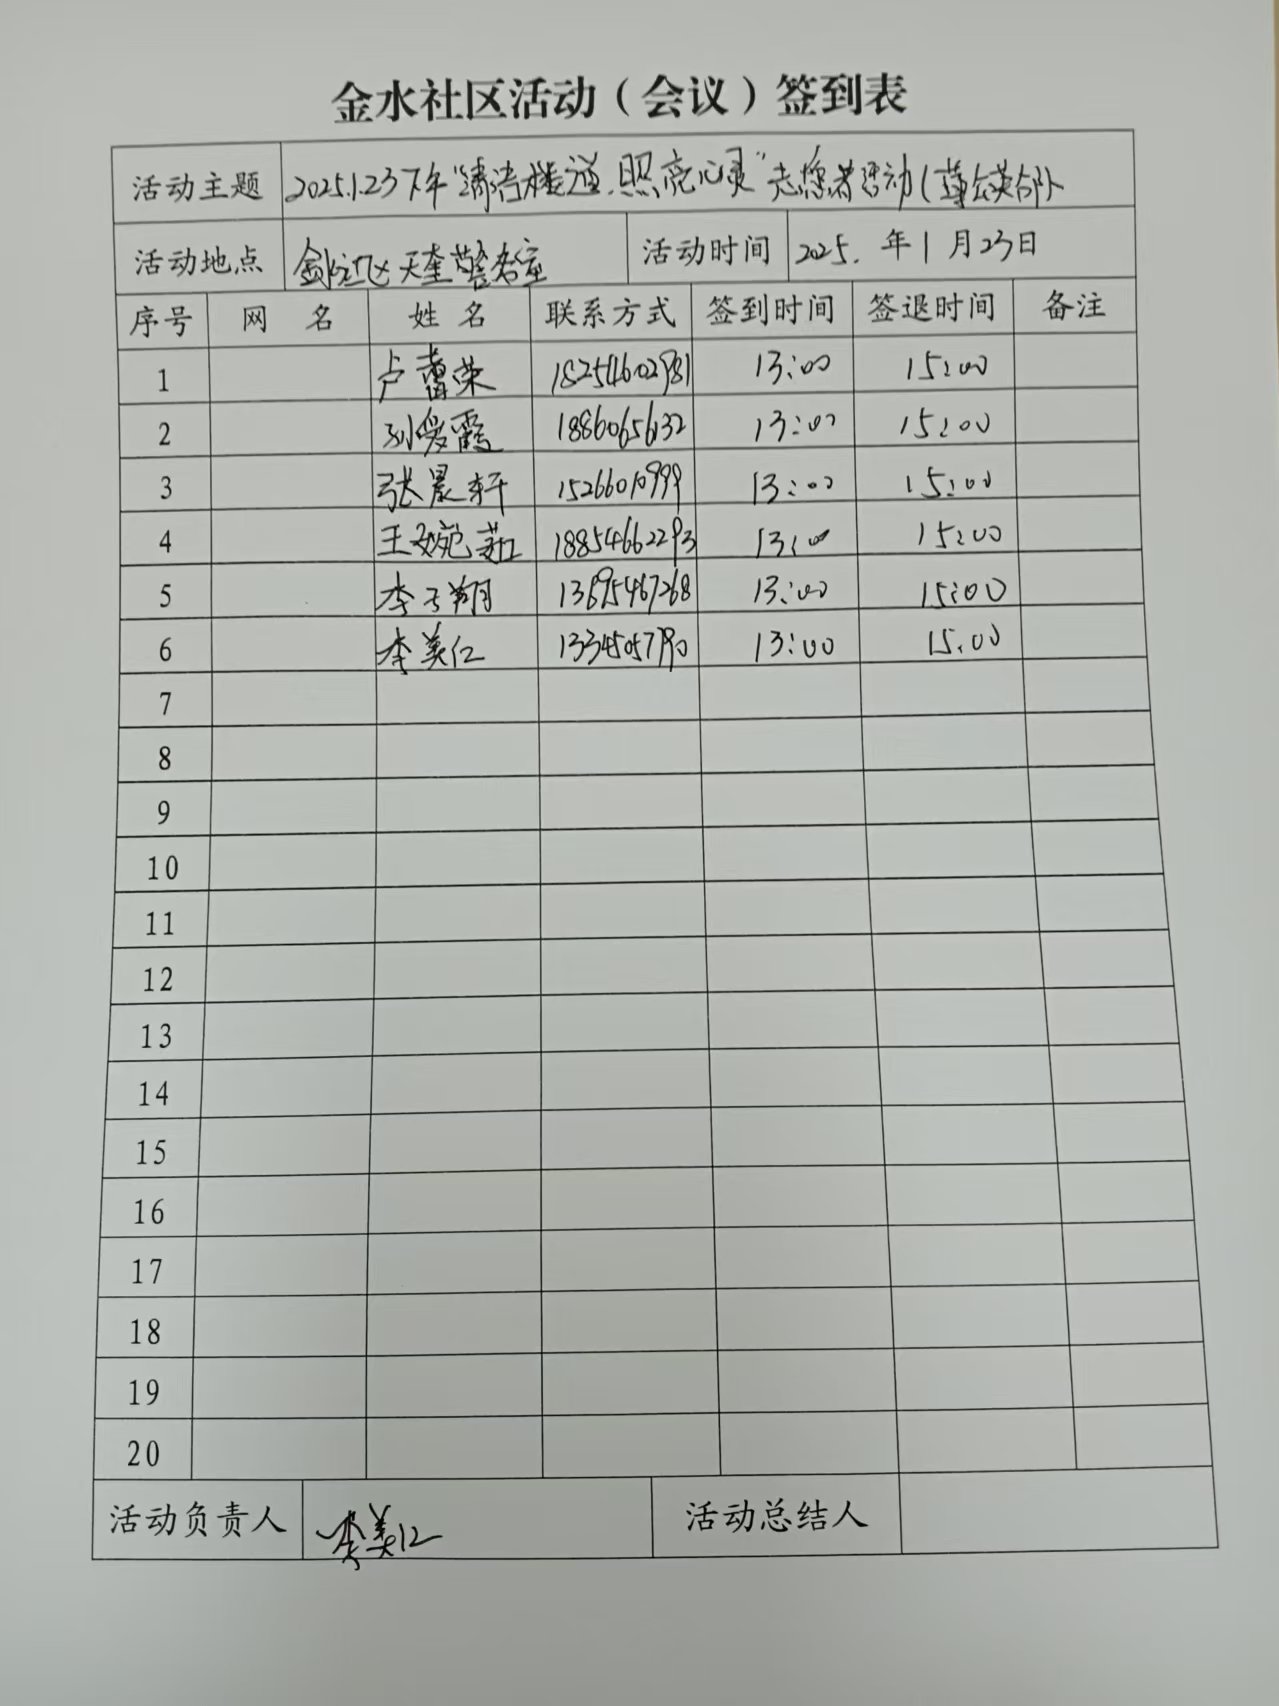 金水社区活动（会议）签到表
活动主题 2025.1.23下午“清洁楼道.照亮心灵”志愿者活动(
活动地点 天奎警务室 活动时间 2025. 年1月23日
序号 网 名 姓 名 联系方式 签到时间 签退时间 备注
1 卢蕾荣 18254602981 13:00 15:00
2 刘爱霞 18860656132 13:00 15:00
3 张晨轩 15266010999 13:00 15:00
4 王 18854662293 13:00 15:00
5 李子翔 13695467268 13:00 15:00
6 李美仁 13345057790 13:00 15:00
7
8
9
10
11
12
13
14
15
16
17
18
19
20
活动负责人 李美仁 活动总结人